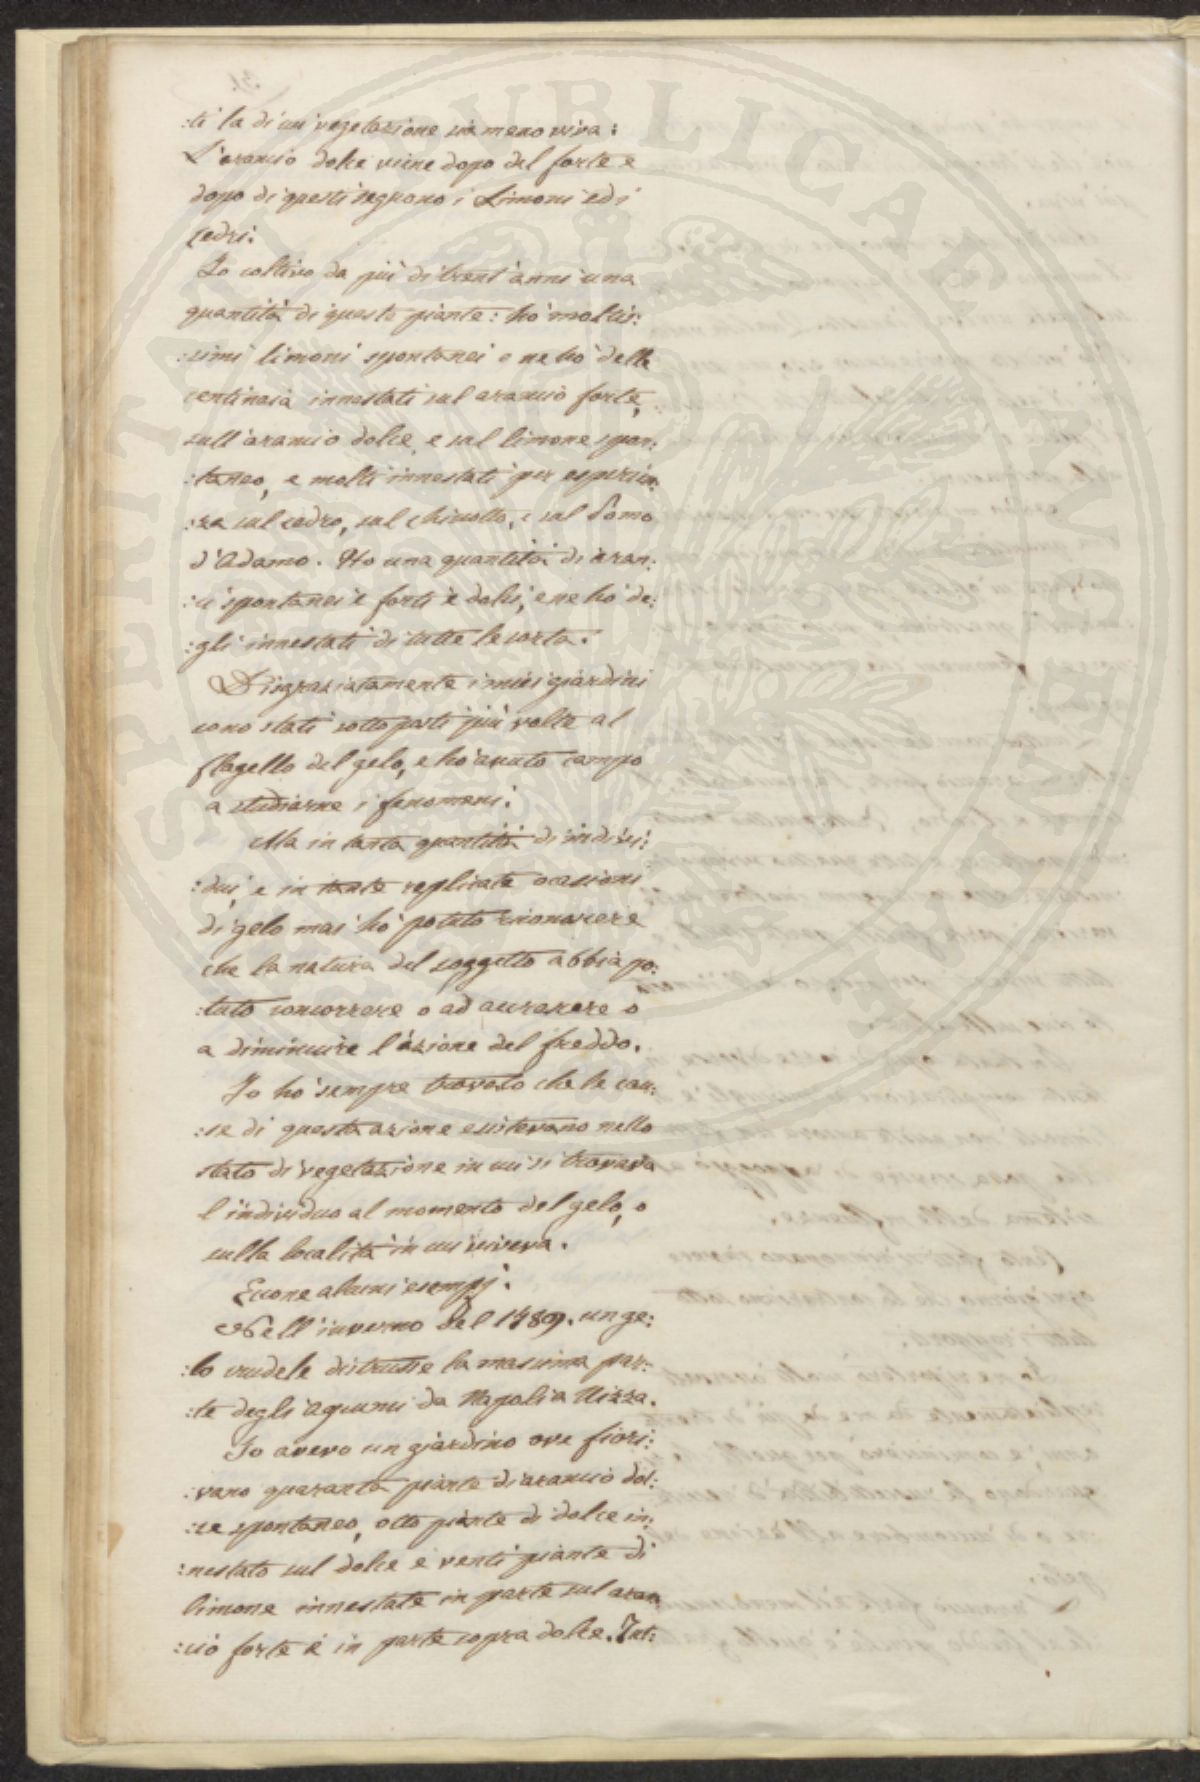 :ti la di cui vegetazione sia meno viva:
L'arancio dolce viene dopo del forte e
dopo di questi seguono i Limoni ed i
cedri.
Io coltivo da più di trent'anni una
quantità di queste piante: ho moltis:
:simi limoni spontanei e ne ho delle
centinaia innestati sul arancio forte,
sull'arancio dolce, e sul limone spon:
:taneo, e molti innestati per esperien:
:za sul cedro, sul chinotto, e sul Pomo
d'Adamo. Ho una quantità di aran:
:ci spontanei e forti e dolci, e ne ho de:
:gli innestati di tutte le sorta.
Disgraziatamente i miei giardini
sono stati sottoposti più volte al
flagello del gelo, e ho avuto campo
a studiarne i fenomeni.
Ma in tanta quantità di indivi:
:dui, e in tante replicate ocasioni
di gelo mai ho potuto riconoscere
che la natura del soggetto abbia po:
:tuto concorrere o ad accrescere o
a diminuire l'azione del freddo.
Io ho sempre trovato che le cau:
:se di questa azione esistevano nello
stato di vegetazione in cui si trovava
l'individuo al momento del gelo, o
sulla località in cui viveva.
Eccone alcuni esempj.
Nell'inverno del 1789. un ge:
:lo crudele distrusse la massima par:
:te degli agrumi da Napoli a Nizza.
Io avevo un giardino ove fiori:
:vano quaranta piante di arancio dol:
:ce spontaneo, otto piante di dolce in:
:nestato sul dolce e venti piante di
limone innestate in parte sul aran
:cio forte e in parte sopra dolce. Tut:
SPERITATI PUBLICAE AUGENDAE